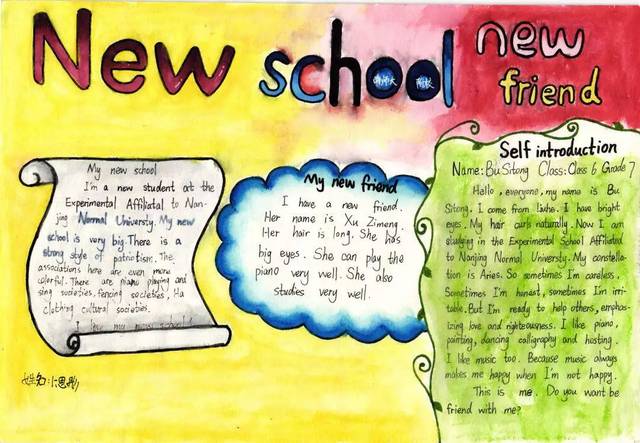 New school new
friend
My new school
I'm a new student at the
Experimental Affiliated to Nan-
jing Normal University. My new
school is very big. There is a
strong style of patriotism. The
associations here are even more
colorful. There are piano playing and
sing societies, fencing societies, Ha
clothing cultural societies.
I love my new school!
My new friend
I have a new friend.
Her name is Xu Zimeng.
Her hair is long. She has
big eyes. She can play the
piano very well. She also
studies very well.
Self introduction
Name: Bu Sitong Class: Class 6 Grade 7
Hello, everyone, my name is Bu
Sitong. I come from liuhe. I have bright
eyes. My hair curls naturally. Now I am
studying in the Experimental School Affiliated
to Nanjing Normal University. My constella-
tion is Aries. So sometimes I'm careless.
Sometimes I'm honest, sometimes I'm irri-
table. But I'm ready to help others, emphas-
izing love and righteousness. I like piano,
painting, dancing calligraphy and hosting.
I like music too. Because music always
makes me happy when I'm not happy.
This is me. Do you want be
friend with me?
姓名:卜思彤